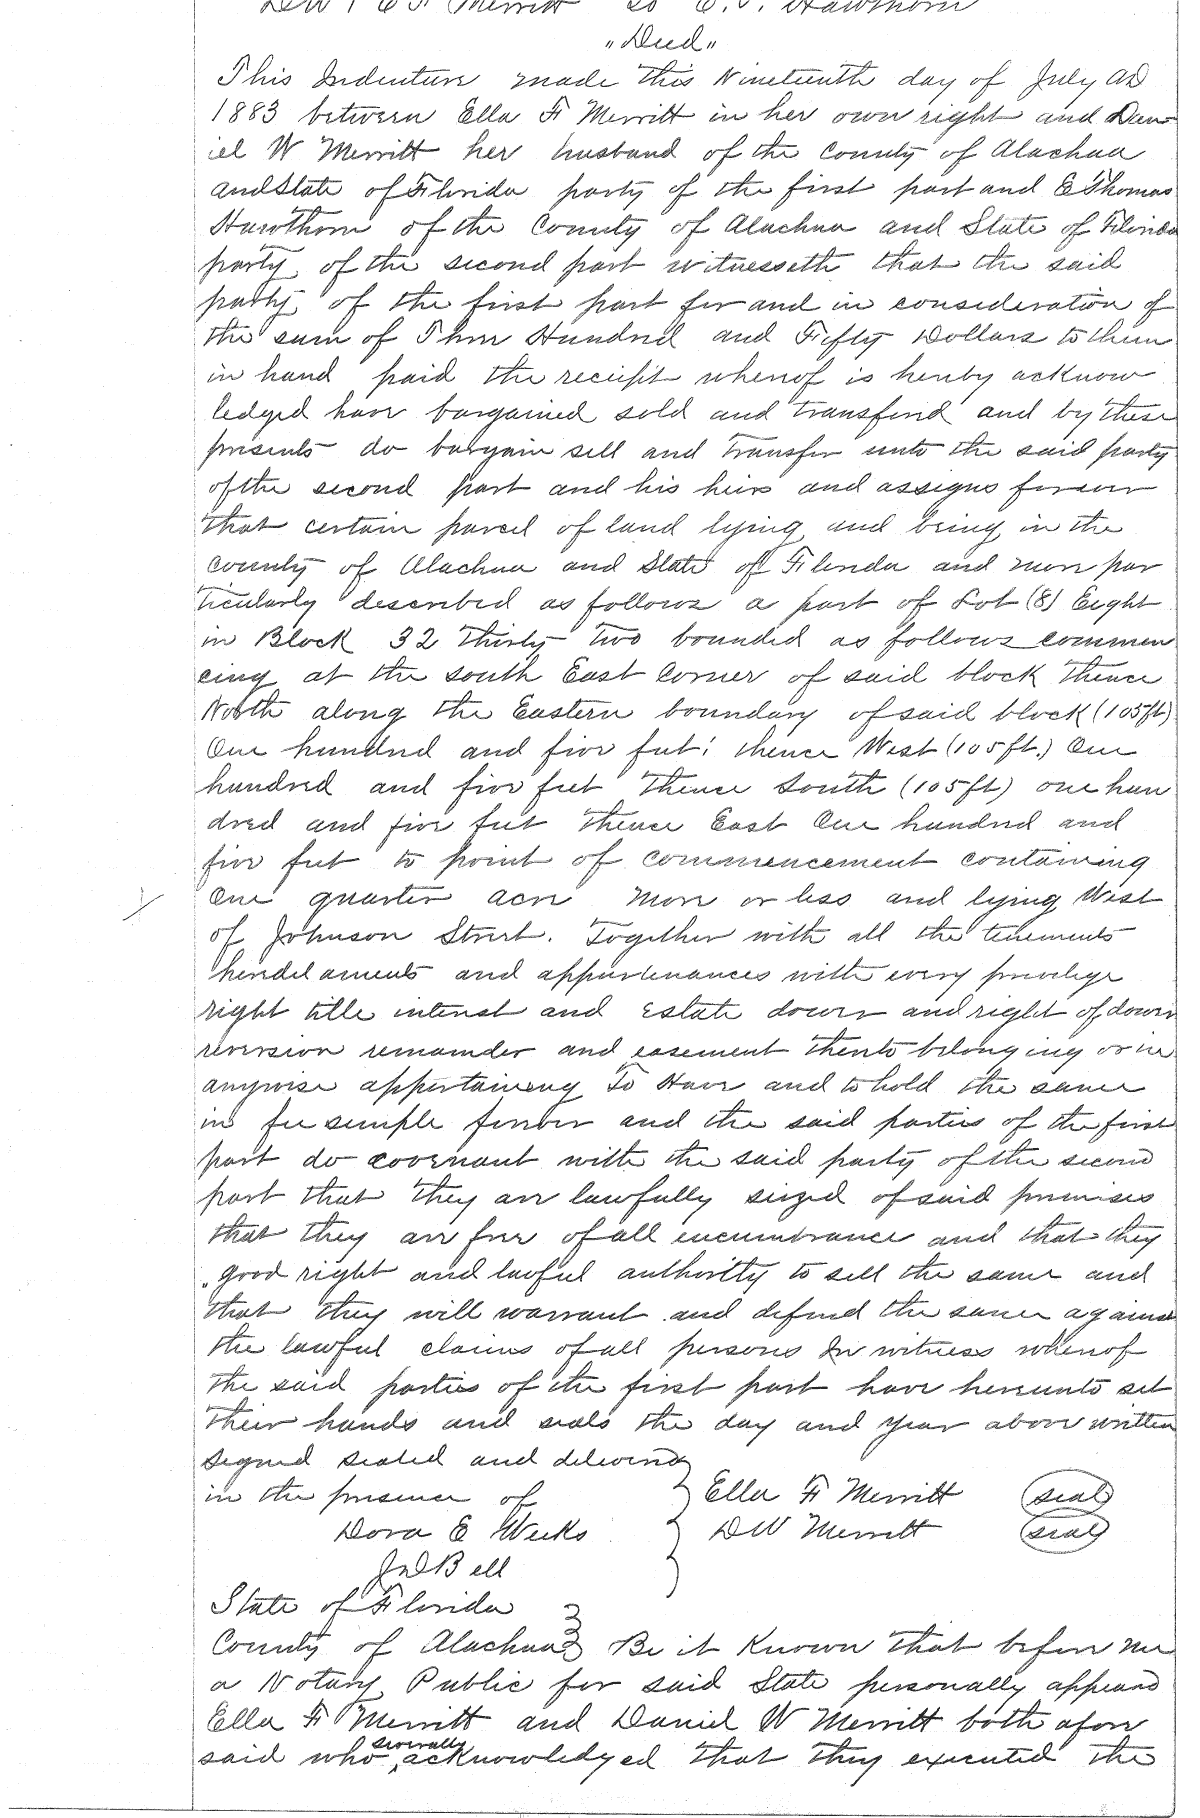 DW & E F Merritt to E. T. Hawthorn
"Deed"
This Indenture made this Nineteenth day of July AD
1883 between Ella F Merritt in her own right and Dan
iel W Merritt her husband of the County of Alachua
and State of Florida party of the first part and E Thomas
Hawthorn of the County of Alachua and State of Florida
party of the second part witnesseth that the said
party of the first part for and in consideration of
the sum of Three Hundred and Fifty Dollars to them
in hand paid the receipt whereof is hereby acknow
ledged have bargained sold and transferd and by these
presents do bargain sell and Transfer unto the said party
of the second part and his heirs and assigns forever
that certain parcel of land lying and being in the
county of Alachua and State of Florida and more par
ticularly described as follows a part of Lot (8) Eight
in Block 32 Thirty two bounded as follows commen
cing at the south East Corner of said block Thence
North along the Eastern boundary of said block (105ft)
One hundred and five feet; thence West (105ft.) One
hundred and five feet Thence South (105ft) one hun
dred and five feet thence East One hundred and
five feet to point of commencement containing
One quarter acre more or less and lying West
of Johnson Street. Together with all the tenements
heredelaments and appurtenances with every privilege
right title interest and Estate dower and right of dower
reversion remainder and easement thereto belonging or in
anywise appertaining To Have and to hold the same
in fee simple forever and the said parties of the first
part do covenant with the said party of the second
part that they are lawfully seized of said premises
that they are free of all encumbrance and that they
good right and lawful authority to sell the same and
that they will warrant and defend the same against
the lawful claims of all persons In witness whereof
the said parties of the first part have hereunto set
their hands and seals the day and year above written
signed sealed and delivered
in the presence of Ella F Merritt (seal)
Dora E Weeks DW Merritt (seal)
JnO Bell
State of Florida
County of Alachua Be it Known that before me
a Notary Public for said State personally appeard
Ella F Merritt and Daniel W Merritt both afore
said who severally acknowledged that they executed the